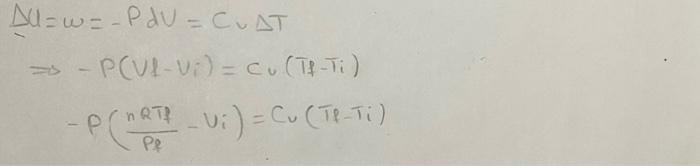 ΔU = w = -PdV = Cv ΔT
⇒ -P(Vf - Vi) = Cv (Tf - Ti)
-P(nRTf/Pf - Vi) = Cv (Tf - Ti)